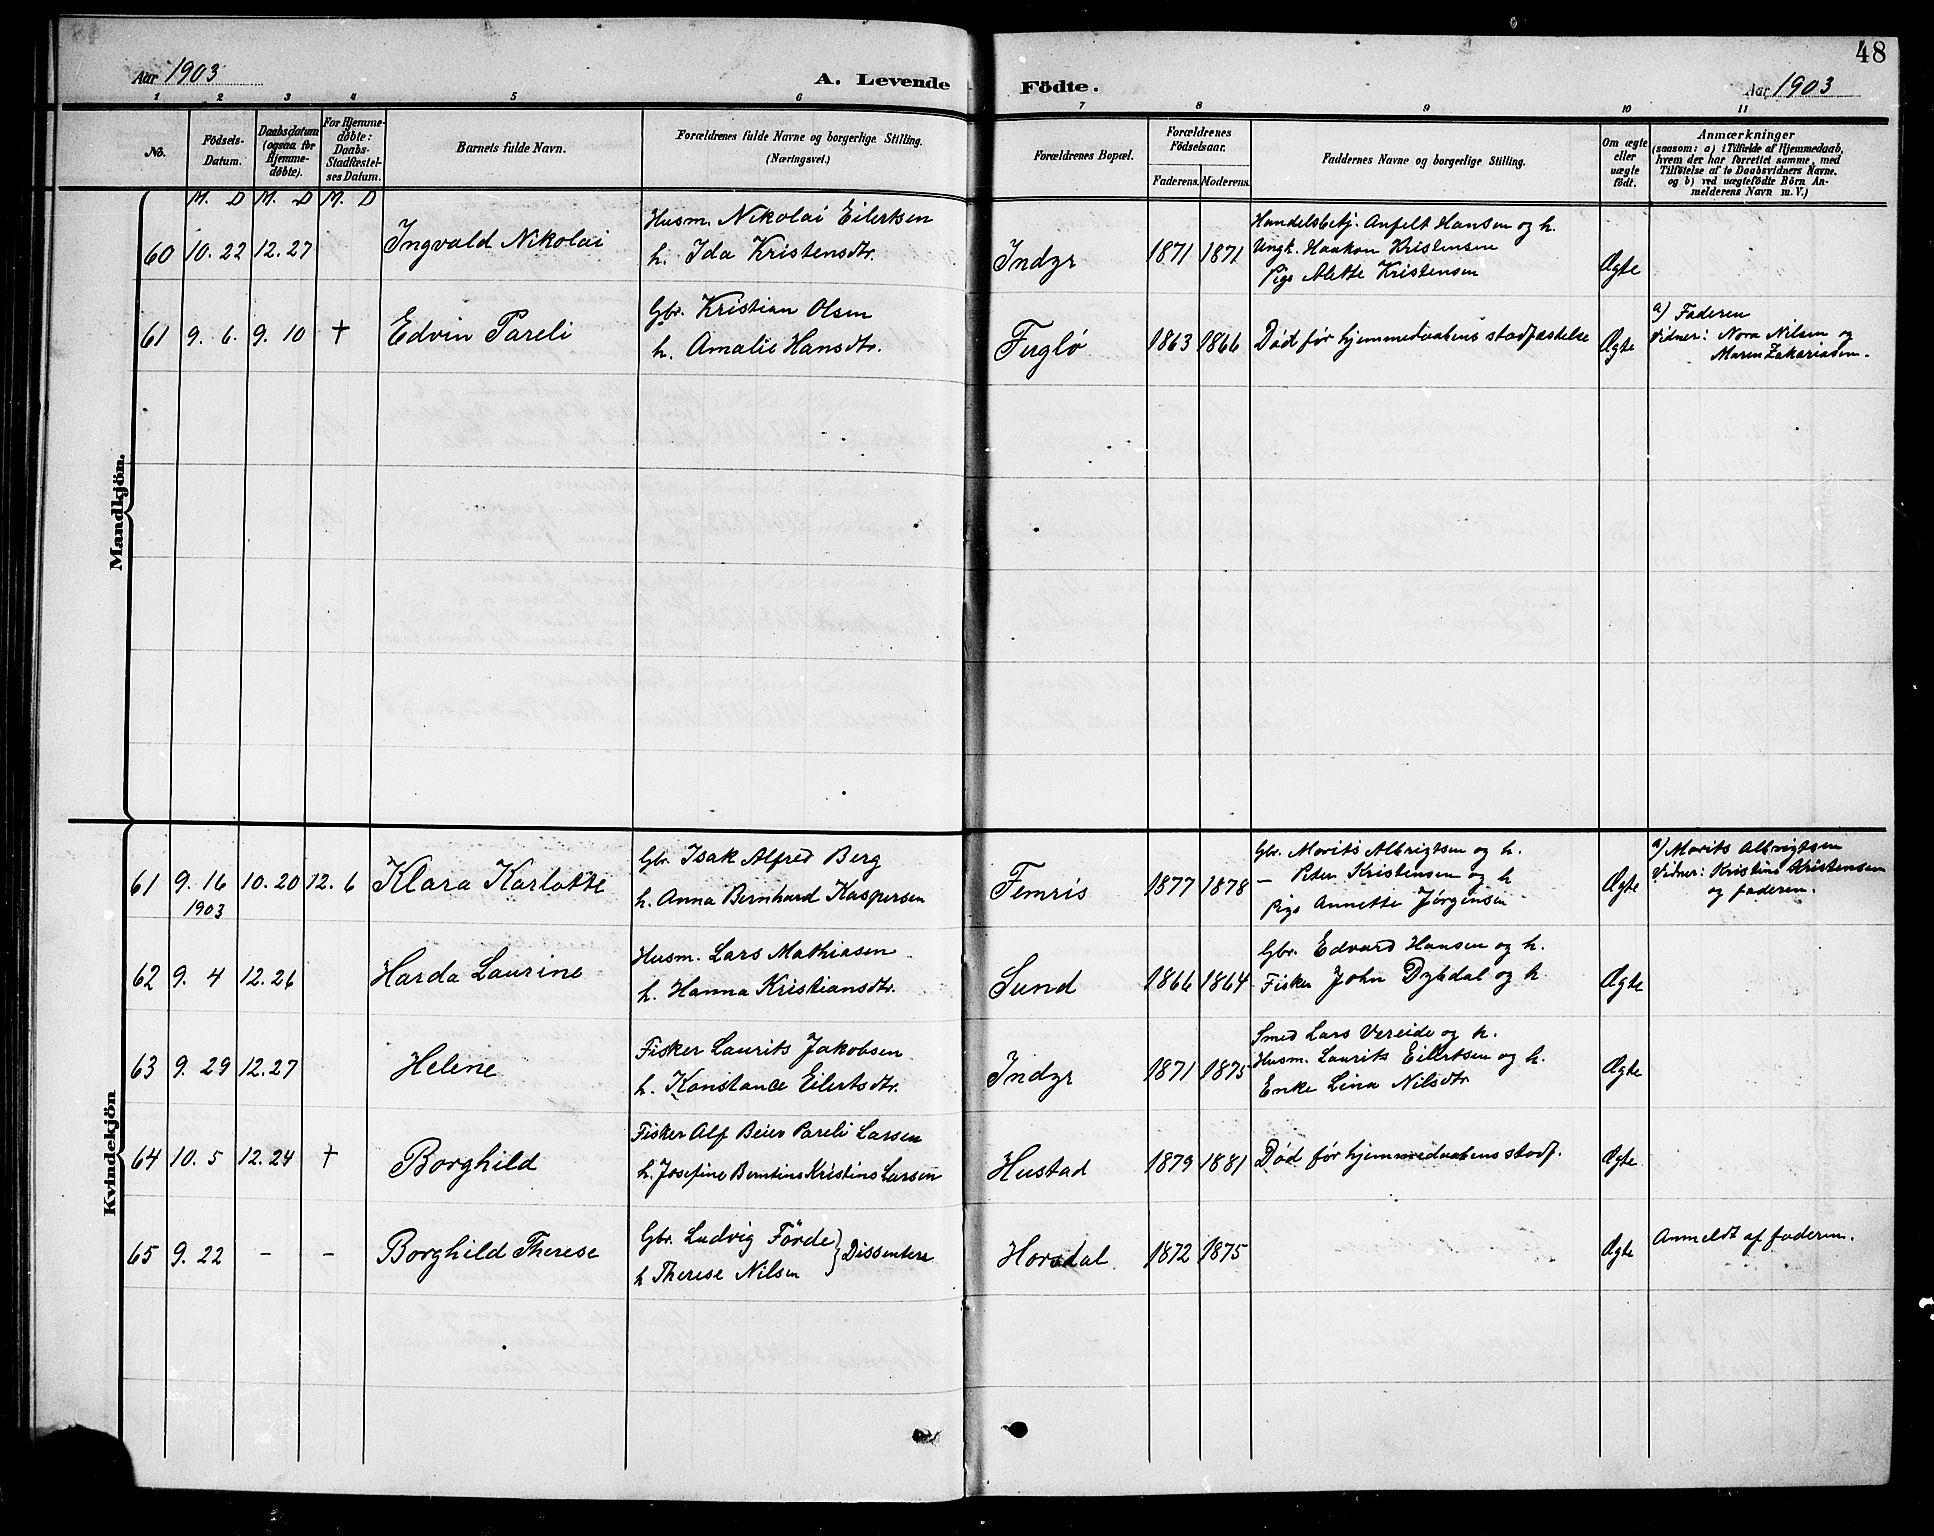 48
Aar 1903
A. Levende
Födte.
Aar 1903
1 2 3 4 5 6 7 8 9 10 11
No.
Födsels-
Datum.
Daabsdatum
(ogsaa for
Hjemme-
døbte).
For Hjemme-
døbte:
Daabs-
Stadfæstel-
ses Datum.
Barnets fulde Navn.
Forældrenes fulde Navne og borgerlige Stilling.
(Næringsvei.)
Forældrenes Bopæl.
Forældrenes
Födselsaar.
Faderens. Moderens.
Faddernes Navne og borgerlige Stilling.
Om ægte
eller
uægte
födt.
Anmærkninger
(saasom: a) i Tilfælde af Hjemmedaab,
hvem der har forrettet samme, med
Tilföielse af to Daabsvidners Navne.
og b) ved uægtefödte Börn An-
melderens Navn m. V.)
M. D M. D M. D
Mandkjön.
60 10. 22 12. 27
Ingvald Nikolai
Husm. Nikolai Eilertsen
h. Ida Kristensdtr.
Indyr
1871 1871
Handelsbetj. Anfelt Hansen og h.
Ungk. Haakon Kristensen
Pige Alette Kristensen
Ægte
61 9. 6. 9. 10 †
Edvin Pareli
Gbr. Kristian Olsen
h. Amalie Hansdtr.
Fuglø
1863 1866
Død før hjemmedaabens stadfæstelse
Ægte
a) Faderen
Vidner: Nora Nilsen og
Maren Zakariasen.
Kvindekjön
61 9. 16 10. 20 12. 6
1903
Klara Karlotte
Gbr. Isak Alfred Berg
h. Anna Bernhard Kaspersen
Femris
1877 1878
Gbr. Morits Albrigtsen og h.
— Peter Kristensen og h
Pige Annette Jørgensen
Ægte
a) Morits Albrigtsen
Vidner: Kristine Kristensen
og faderen.
62 9. 4 12. 26
Harda Laurine
Husm. Lars Mathiasen
h. Hanna Kristiansdtr.
Sund
1866 1864
Gbr. Edvard Hansen og h.
Fisker John Dybdal og h
Ægte
63 9. 29 12. 27
Helene
Fisker Laurits Jakobsen
h. Konstance Eilertsdtr.
Indyr
1871 1875
Smed Lars Vereide og h.
Husm. Laurits Eilertsen og h.
Enke Lina Nilsdtr
Ægte
64 10. 5 12. 24 †
Borghild
Fisker Alf Beier Pareli Larsen
h. Josefine Berntine Kristine Larsen
Hustad
1879 1881
Død før hjemmedaabens stadf.
Ægte
65 9. 22 – –
Borghild Therese
Gbr. Ludvig Förde
h Therese Nilsen } Dissentere
Horsdal
1872 1875
Ægte
Anmeldt af faderen.